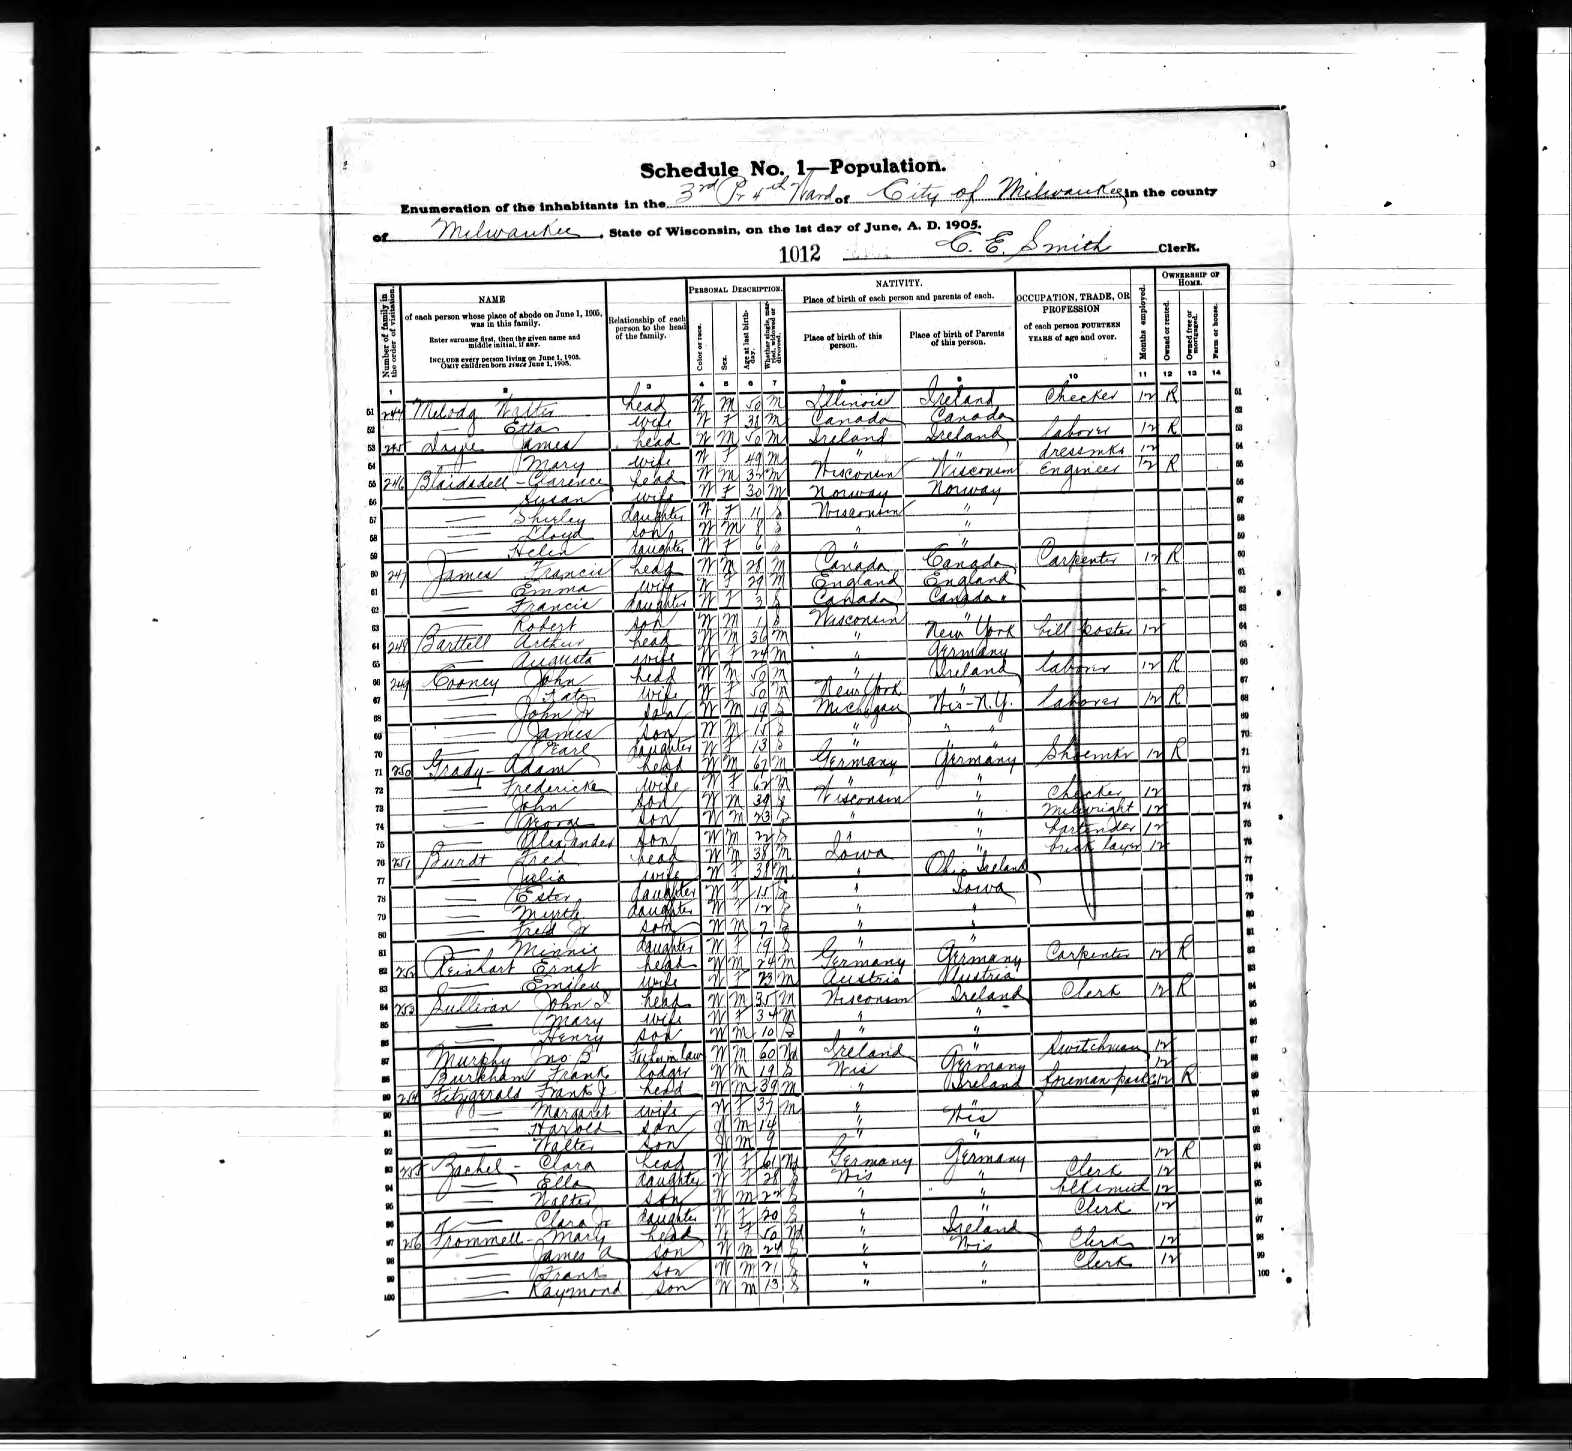 Schedule No. 1—Population.
Enumeration of the inhabitants in the 3rd Pr 4th Ward of City of Milwaukee in the county
of Milwaukee, State of Wisconsin, on the 1st day of June, A. D. 1905.
1012 C. E. Smith Clerk.
Number of family in the order of visitation.
NAME
of each person whose place of abode on June 1, 1905, was in this family.
Enter surname first, then the given name and middle initial, if any.
INCLUDE every person living on June 1, 1905.
OMIT children born since June 1, 1905.
Relationship of each person to the head of the family.
PERSONAL DESCRIPTION.
Color or race.
Sex.
Age at last birthday.
Whether single, married, widowed or divorced.
NATIVITY.
Place of birth of each person and parents of each.
Place of birth of this person.
Place of birth of Parents of this person.
OCCUPATION, TRADE, OR PROFESSION
of each person FOURTEEN YEARS of age and over.
Months employed.
OWNERSHIP OF HOME.
Owned or rented.
Owned free or mortgaged.
Farm or house.
1 2 3 4 5 6 7 8 9 10 11 12 13 14
51 244 Melody Walter head W M 50 M Illinois Ireland Checker 12 R 51
52 — Etta wife W F 38 M Canada Canada 52
53 245 James head W M 50 M Ireland Ireland laborer 12 R 53
54 — Mary wife W F 49 M " " dressmkr 12 54
55 246 Blaidsdell - Clarence head W M 32 M Wisconsin Wisconsin Engineer 12 R 55
56 — Susan wife W F 30 M Norway Norway 56
57 — Shirley daughter W F 11 S Wisconsin " 57
58 — Lloyd son W M 8 S " " 58
59 — Helen daughter W F 6 S " " 59
60 247 James Francis head W M 28 M Canada Canada Carpenter 12 R 60
61 — Emma wife W F 29 M England England 61
62 — Francis daughter W F 3 S Canada Canada 62
63 — Robert son W M 1 S Wisconsin " 63
64 248 Barttell Arthur head W M 36 M " New York bill poster 12 64
65 — Augusta wife W F 24 M " Germany 65
66 249 Cooney John head W M 50 M " Ireland laborer 12 R 66
67 — Kate wife W F 50 M New York " 67
68 — John Jr son W M 19 S Michigan Wis-N.Y. laborer 12 R 68
69 — James son W M 15 S " " " 69
70 — Pearl daughter W F 13 S " " " 70
71 250 Grady - Adam head W M 67 M Germany Germany Shoemkr 12 R 71
72 — Fredericke wife W F 62 M " " 72
73 — John son W M 39 S Wisconsin " Checker 12 73
74 — George son W M 23 S " " Millwright 12 74
75 — Alexander son W M 22 S " " bartender 12 75
76 251 Burdt Fred head W M 38 M Iowa " brick layer 12 76
77 — Julia wife W F 38 M " Ohio Ireland 77
78 — Ester daughter W F 15 S " Iowa 78
79 — Myrtle daughter W F 12 S " " 79
80 — Fred Jr son W M 7 S " " 80
81 — Minnie daughter W F 19 S " " 81
82 252 Reinhart Ernst head W M 24 M Germany Germany Carpenter 12 R 82
83 — wife W F 23 M Austria Austria 83
84 253 Sullivan John head W M 35 M Wisconsin Ireland Clerk 12 R 84
85 — Mary wife W F 34 M " " 85
86 — Henry son W M 10 S " " 86
87 Murphy Jno B Father in law W M 60 Wd Ireland " Switchman 12 87
88 Burkham Frank lodger W M 19 S Wis Germany 12 88
89 254 Fitzgerald Frank J head W M 39 M " Ireland foreman 12 R 89
90 — Margaret wife W F 37 M " " 90
91 — Harold son W M 14 " Wis 91
92 — Walter son W M 9 " " 92
93 255 Zachel - Clara head W F 61 Wd Germany Germany 12 R 93
94 — Ella daughter W F 28 S Wis " Clerk 12 94
95 — Walter son W M 22 S " " 12 95
96 — Clara Jr daughter W F 20 S " " Clerk 12 96
97 256 Trommell - Mary head W F 50 Wd " Ireland 97
98 — James A son W M 24 S " Wis Clerk 12 98
99 — Frank son W M 21 S " " Clerk 12 99
100 — Raymond son W M 13 S " " 100